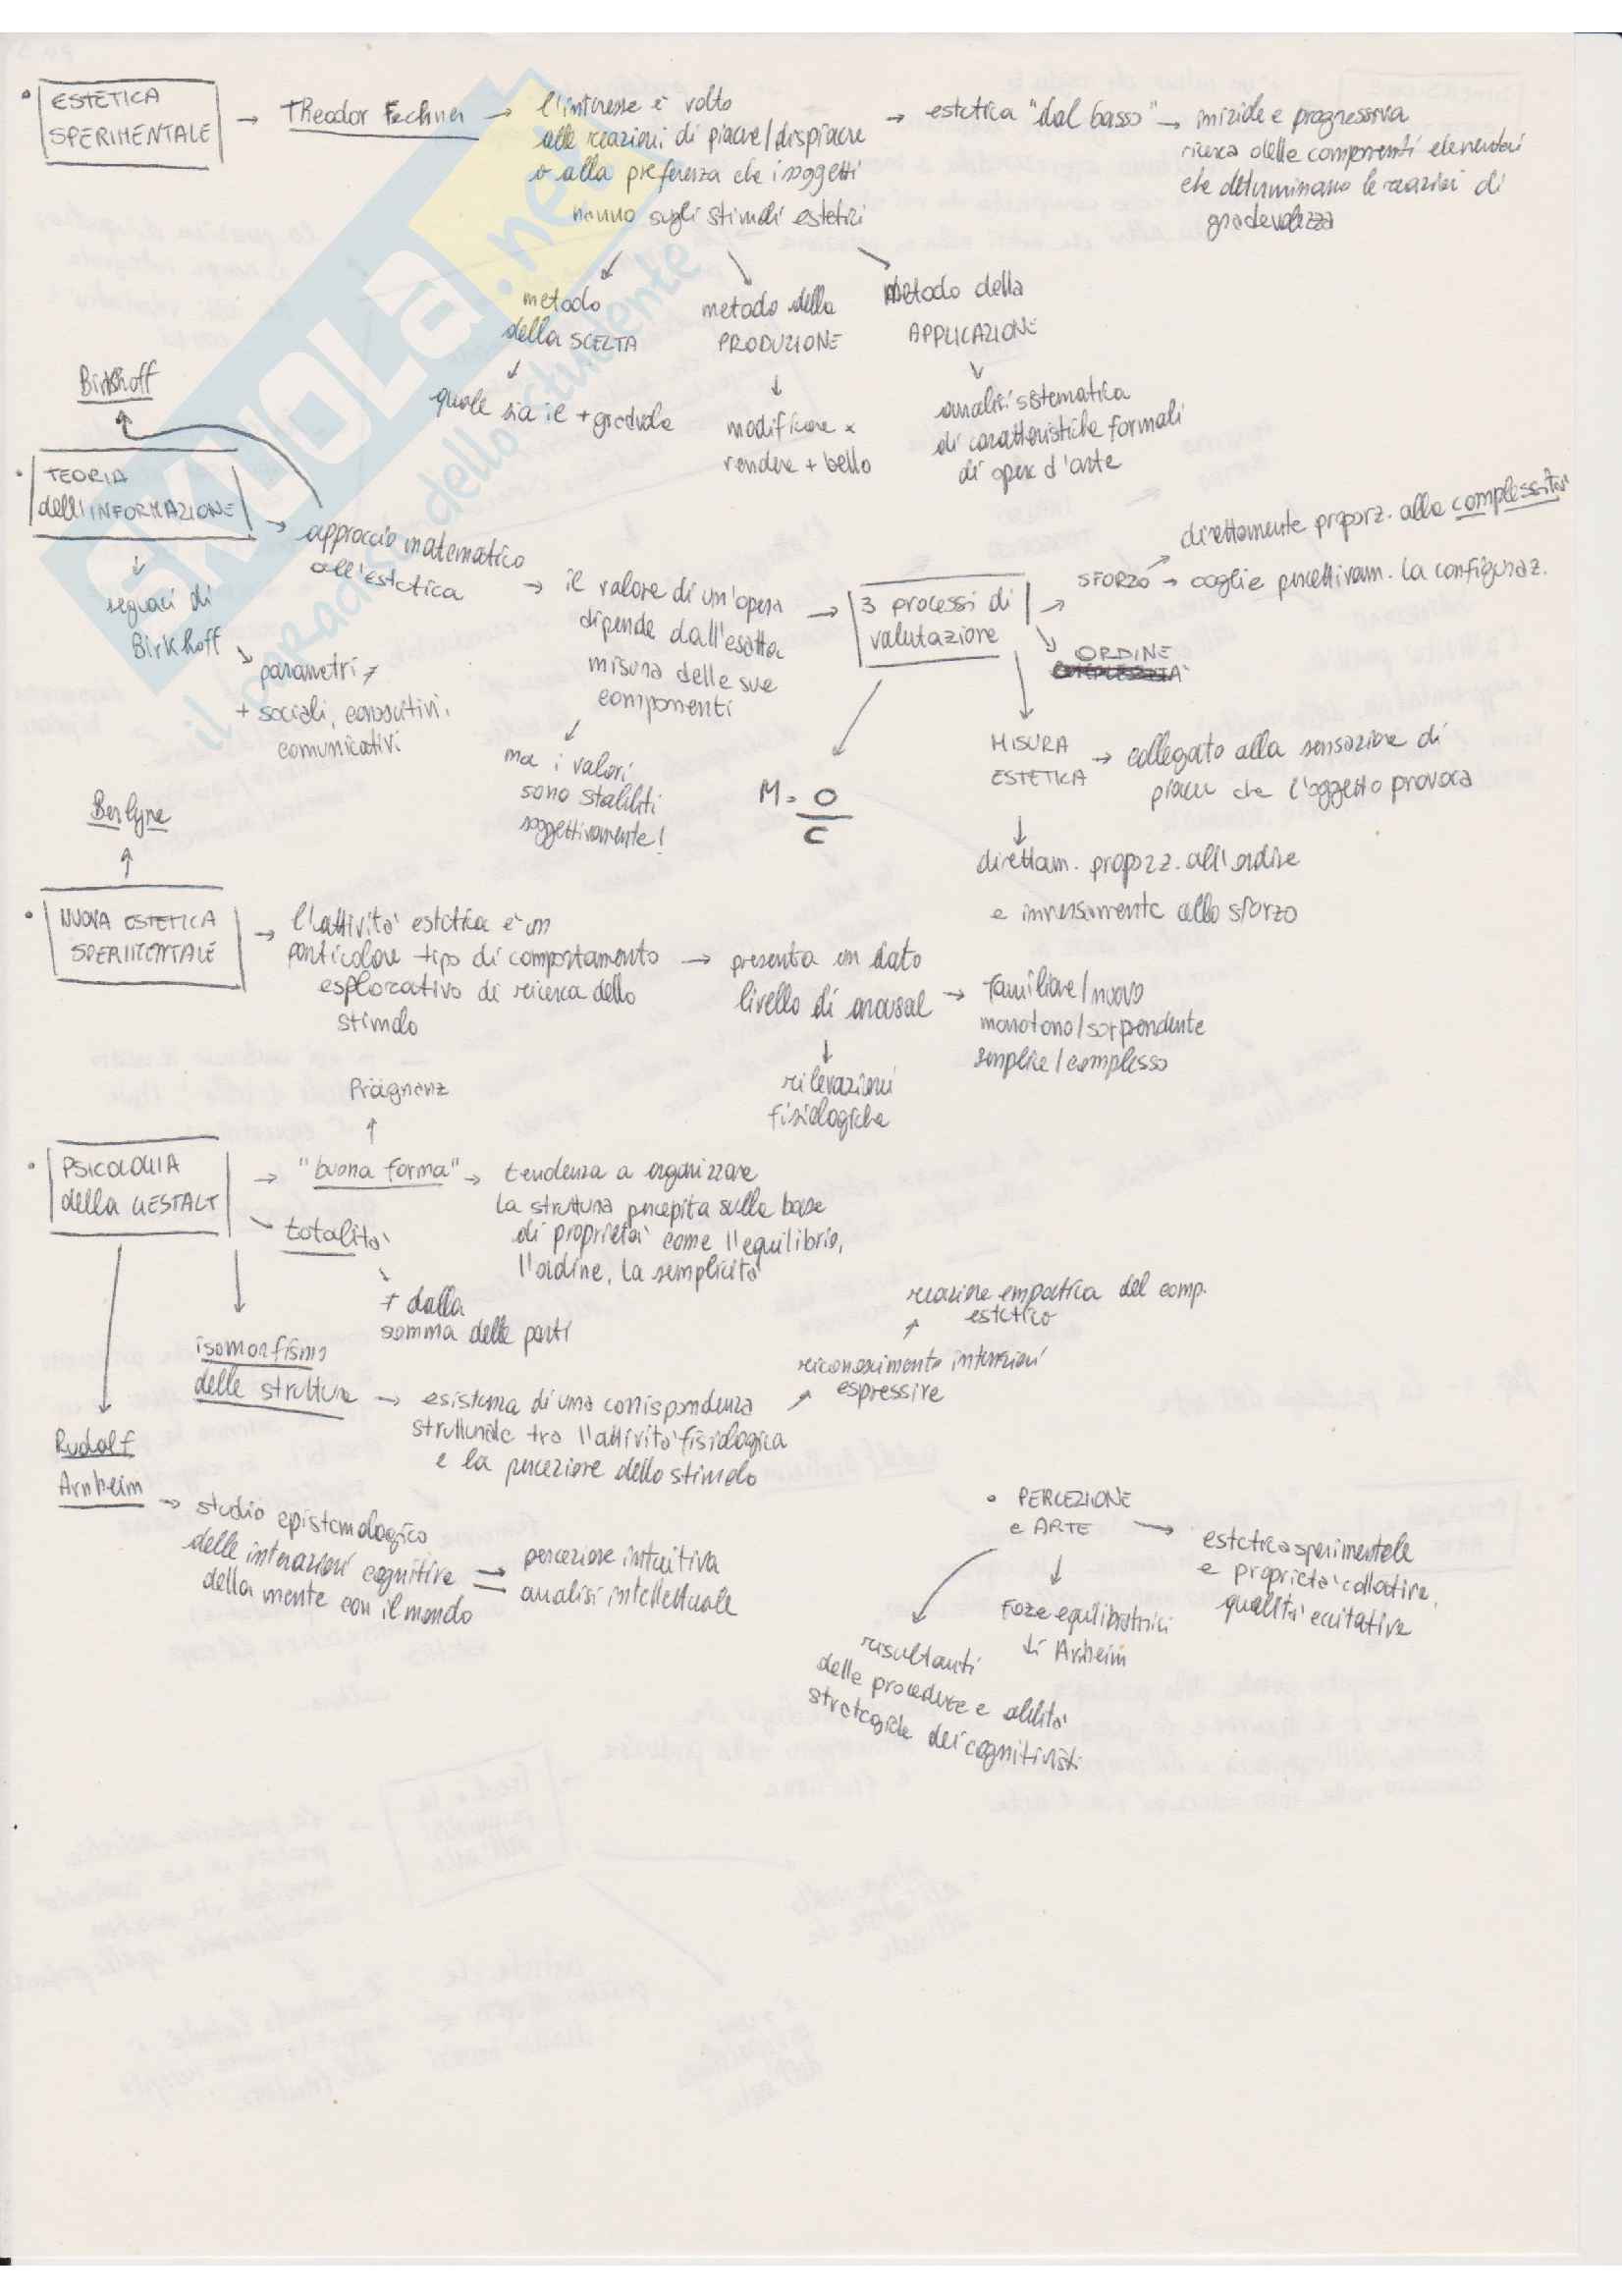 • ESTETICA
SPERIMENTALE
→ Theodor Fechner →
l'interesse è volto
alle reazioni di piacere/dispiacere
o alla preferenza che i soggetti
hanno sugli stimoli estetici
→ estetica "dal basso" → iniziale e progressiva
ricerca delle componenti elementari
che determinano le reazioni di
gradevolezza
metodo
della SCELTA
↓
quale sia il + gradevole
metodo della
PRODUZIONE
↓
modificare x
rendere + bello
metodo della
APPLICAZIONE
↓
analisi sistematica
di caratteristiche formali
di opere d'arte
Birkhoff
• TEORIA
dell'INFORMAZIONE
↓
seguaci di
Birkhoff
parametri ≠
+ sociali, conoscitivi,
comunicativi
→ approccio matematico
all'estetica
→ il valore di un'opera
dipende dall'esatta
misura delle sue
componenti
ma i valori
sono stabiliti
soggettivamente!
→ 3 processi di
valutazione
direttamente proporz. alla complessità
SFORZO → coglie percettivam. la configuraz.
ORDINE
MISURA
ESTETICA
→ collegato alla sensazione di
piacere che l'oggetto provoca
↓
direttam. proporz. all'ordine
e inversamente allo sforzo
M = O
C
Berlyne
↑
• NUOVA ESTETICA
SPERIMENTALE
→ l'attività estetica è un
particolare tipo di comportamento
esplorativo di ricerca dello
stimolo
→ presenta un dato
livello di arousal
→ familiare/nuovo
monotono/sorprendente
semplice/complesso
↓
rilevazioni
fisiologiche
Prägnanz
↑
• PSICOLOGIA
della GESTALT
→ "buona forma" → tendenza a organizzare
la struttura percepita sulla base
di proprietà come l'equilibrio,
l'ordine, la semplicità
totalità
≠ dalla
somma delle parti
isomorfismo
delle strutture
→ esistenza di una corrispondenza
strutturale tra l'attività fisiologica
e la percezione dello stimolo
riconoscimento intenzioni
espressive
reazione empatica del comp.
estetico
Rudolf
Arnheim
→ studio epistemologico
delle interazioni cognitive
della mente con il mondo
→ percezione intuitiva
→ analisi intellettuale
• PERCEZIONE
e ARTE
→ estetica sperimentale
e proprietà collative,
qualità eccitative
↓
Forze equilibratrici
di Arnheim
risultanti
delle procedure e abilità
strategiche dei cognitivisti
SKUOLA.net
il paradiso dello studente